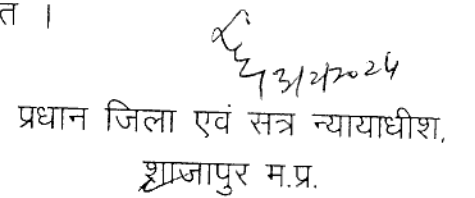 त ।
3/2/2024
प्रधान जिला एवं सत्र न्यायाधीश,
शाजापुर म.प्र.